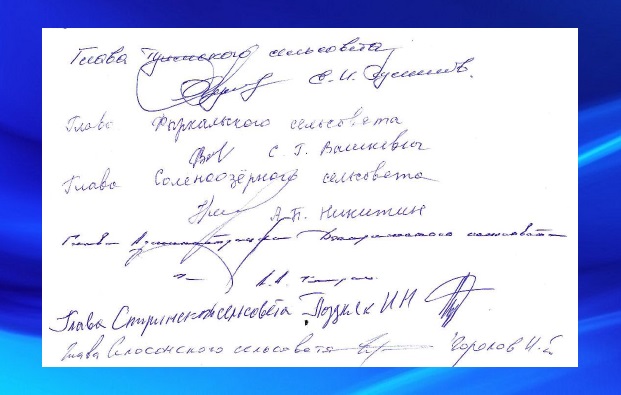 Глава Туимского сельсовета
Е. И.
Глава Фыркальского сельсовета
С. Г. Вашкевич
Глава Соленоозёрного сельсовета
А. П. Никитин
Глава Администрации сельсовета
Глава Спиринского сельсовета Поздняк И Н
Глава Селосонского сельсовета Горелов И.